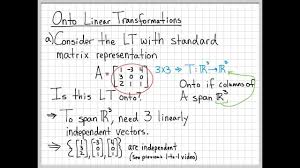 Onto Linear Transformations
a) Consider the LT with standard
matrix representation
A = [1 -3 4
3 0 0
1 2 1] 3x3 ⇒ T: ℝ³→ℝ³
Is this LT onto?
Onto if columns of
A span ℝ³
⇒ To span ℝ³, need 3 linearly
independent vectors.
⇒ {[1 3 1], [-3 0 2], [4 0 1]} are independent
(see previous 1-to-1 video)